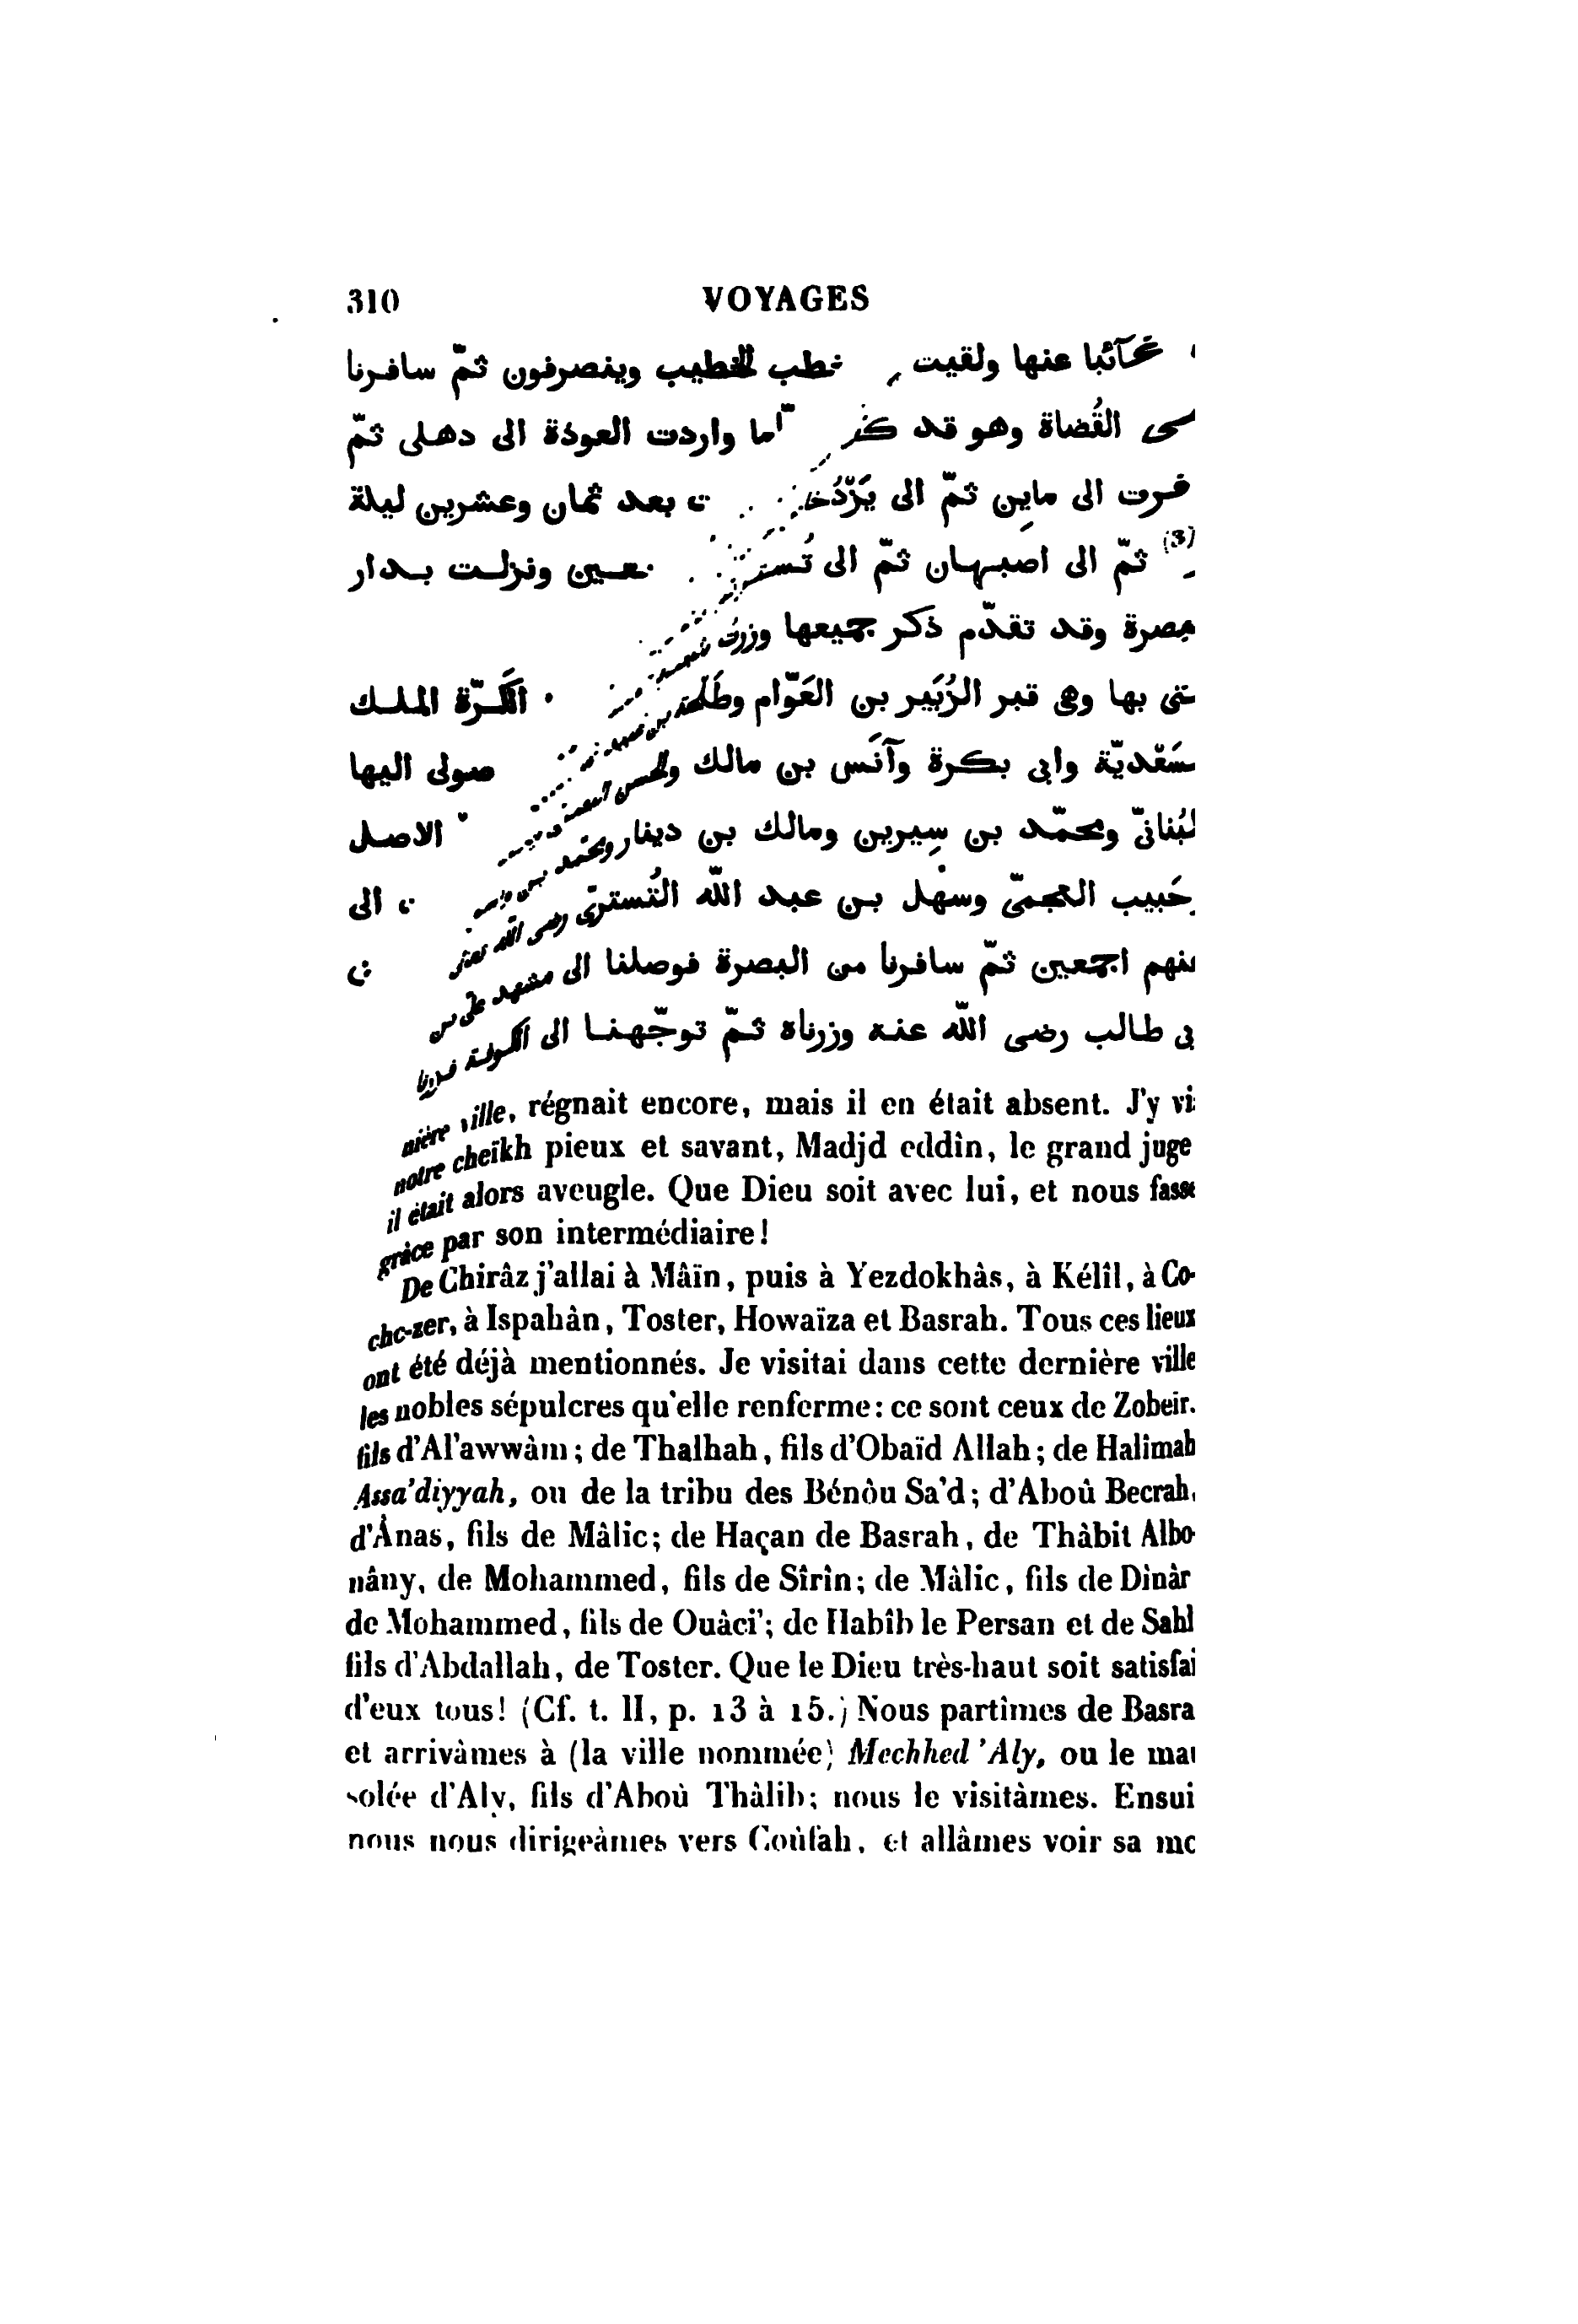 310 VOYAGES
غآئبا عنها ولقيت خطب الخطيب وينصرفون ثمّ سافرنا
القُضاة وهو قد اما واردت العودة الى دهلى ثمّ
الى ماين ثمّ الى بعد ثمان وعشرين ليلة
(3) ثمّ الى اصبهان ثمّ الى ونزلت بدار
وقد تقدّم ذكر جميعها وزرتُ
بها وهى قبر الزُبَير بن العَوّام وطَلحة الملك
وابى بكرة وآنَس بن مالك اليها
ومحمّد بن سِيرين ومالك بن دينار ومحمّد الاصل
العجمىّ وسهْل بن عبد الله التُسترىّ رضى الله الى
اجمعين ثمّ سافرنا من البصرة فوصلنا الى مشهد على
طالب رضى الله عنه وزرناه ثمّ توجّهنا الى الكوفة فزرنا
nière ville, régnait encore, mais il en était absent. J'y vi
notre cheïkh pieux et savant, Madjd eddîn, le grand juge
il était alors aveugle. Que Dieu soit avec lui, et nous fasse
grâce par son intermédiaire!
De Chirâz j'allai à Mâïn, puis à Yezdokhâs, à Kélîl, à Co-
che-zer, à Ispahân, Toster, Howaïza et Basrah. Tous ces lieux
ont été déjà mentionnés. Je visitai dans cette dernière ville
les nobles sépulcres qu'elle renferme: ce sont ceux de Zobeir.
fils d'Al'awwâm; de Thalhah, fils d'Obaïd Allah; de Halîmah
Assa'diyyah, ou de la tribu des Bénôu Sa'd; d'Aboû Becrah,
d'Ânas, fils de Mâlic; de Haçan de Basrah, de Thâbit Albo-
nâny, de Mohammed, fils de Sîrîn; de Mâlic, fils de Dinâr
de Mohammed, fils de Ouâci'; de Habîb le Persan et de Sahl
fils d'Abdallah, de Toster. Que le Dieu très-haut soit satisfai
d'eux tous! (Cf. t. II, p. 13 à 15.) Nous partîmes de Basra
et arrivâmes à (la ville nommée) Mechhed 'Aly, ou le mau
solée d'Aly, fils d'Aboû Thâlib; nous le visitâmes. Ensui
nous nous dirigeâmes vers Coûfah, et allâmes voir sa mo